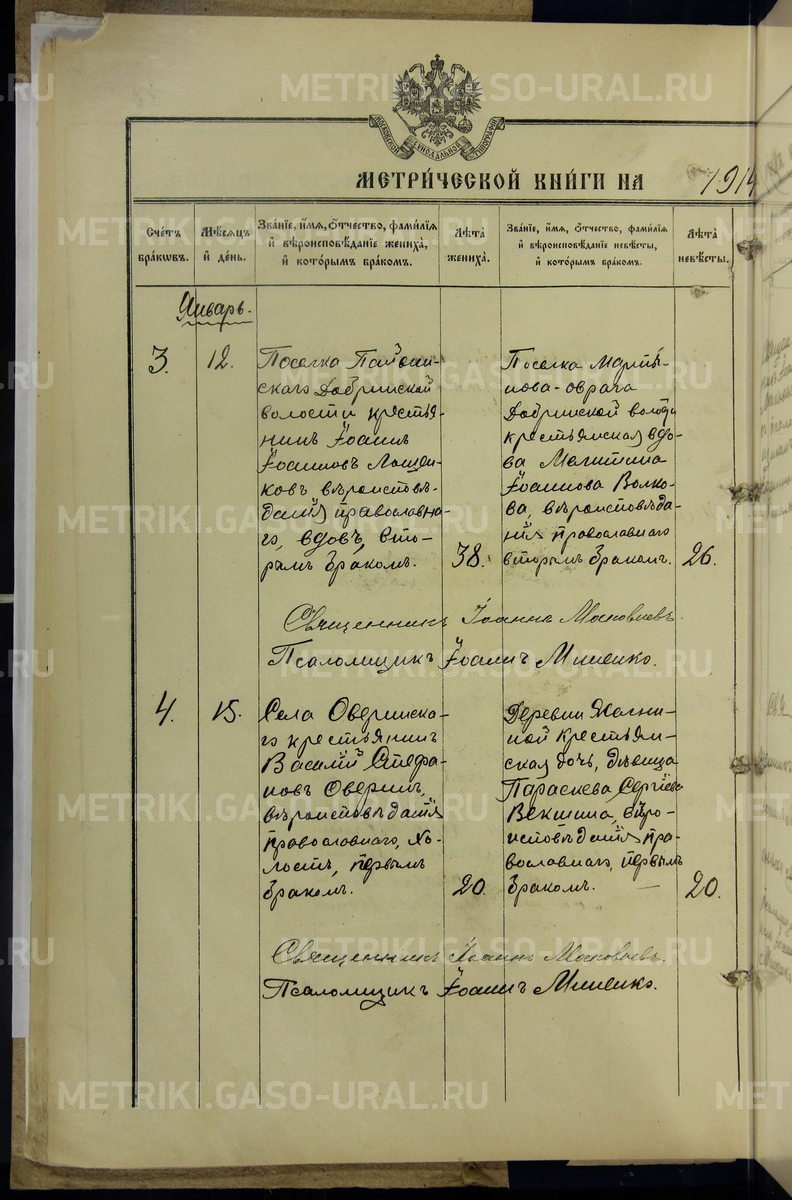 МОСКОВСКОЙ СѴНОДАЛЬНОЙ ТИПОГРАФІИ
МЕТРИ́ЧЕСКОЙ КНИ́ГИ НА 1914
Сче́тъ бра́кѡвъ.
Мѣ́сѧцъ и҆ де́нь.
Зва́нїе, и҆́мѧ, ѻ҆́тчество, фами́лїѧ
и҆ вѣроисповѣ́данїе жениха̀,
и҆ кото́рымъ бра́комъ.
Лѣ́та жениха̀.
Зва́нїе, и҆́мѧ, ѻ҆́тчество, фами́лїѧ
и҆ вѣроисповѣ́данїе невѣ́сты,
и҆ кото́рымъ бра́комъ.
Лѣ́та невѣ́сты.
Январь.
3.
12.
Поселка
скаго Добринской
волости крестья-
нинъ Іоаннъ
Іоанновъ Лощен-
ковъ вѣроисповѣ-
данія православна-
го, вдовъ, вто-
рымъ бракомъ.
38.
Поселка Марты-
нова-оврага
Добринской волости
крестьянская вдо-
ва
Іоаннова Волко-
ва, вѣроисповѣда-
нія православнаго
вторымъ бракомъ.
26.
Священникъ Іоаннъ
Псаломщикъ Іоаннъ Миненко.
4.
15.
Села Оверинска-
го крестьянинъ
Василій Стефа-
новъ Оверинъ,
вѣроисповѣданія
православнаго, хо-
лостъ, первымъ
бракомъ.
20.
Деревни
ной крестьян-
ская дочь, дѣвица
Параскева Сергіева
Векшина, вѣро-
исповѣданія пра-
вославнаго, первымъ
бракомъ. —
20.
Священникъ Іоаннъ
Псаломщикъ Іоаннъ Миненко.
METRIKI.GASO-URAL.RU